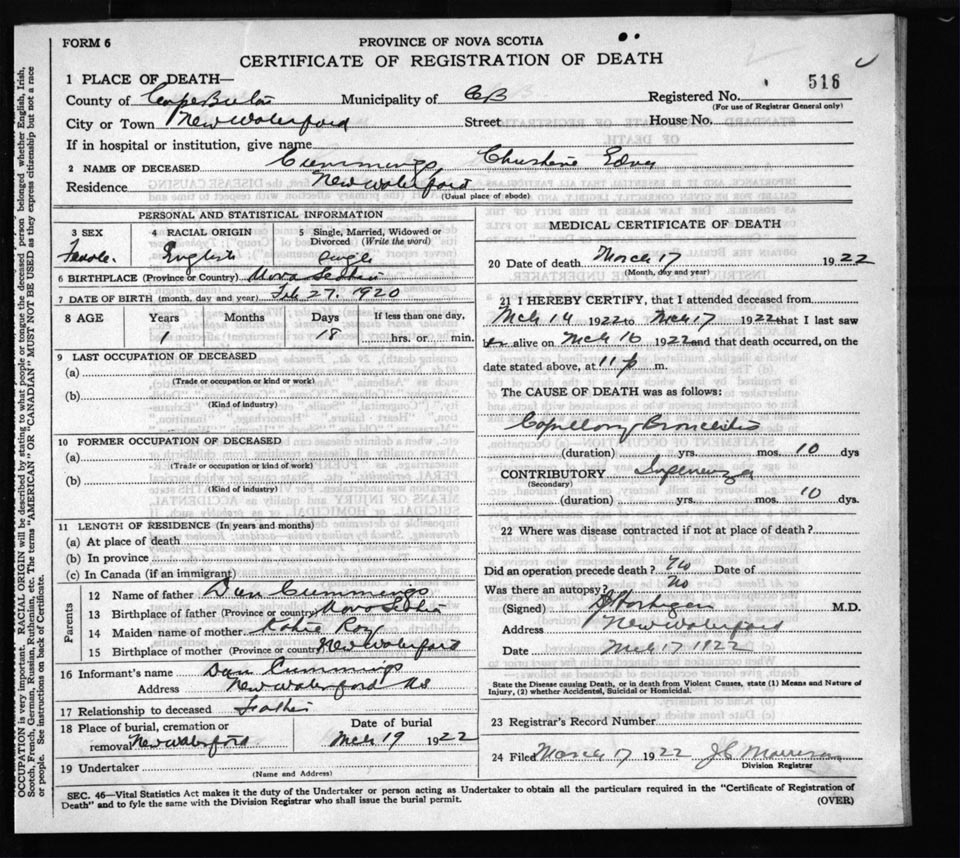 FORM 6
PROVINCE OF NOVA SCOTIA
CERTIFICATE OF REGISTRATION OF DEATH
1 PLACE OF DEATH—
516
County of Cape Breton Municipality of CB Registered No.
(For use of Registrar General only)
City or Town New Waterford Street House No.
If in hospital or institution, give name
2 NAME OF DECEASED Cummings Christene Edna
Residence New Waterford
(Usual place of abode)
PERSONAL AND STATISTICAL INFORMATION
3 SEX 4 RACIAL ORIGIN 5 Single, Married, Widowed or Divorced (Write the word)
Female. English Single
6 BIRTHPLACE (Province or Country) Nova Scotia
7 DATE OF BIRTH (month, day and year) Feb 27. 1920
8 AGE Years Months Days If less than one day,
1 18 hrs. or min.
9 LAST OCCUPATION OF DECEASED
(a)
(Trade or occupation or kind or work)
(b)
(Kind of industry)
10 FORMER OCCUPATION OF DECEASED
(a)
(Trade or occupation or kind or work)
(b)
(Kind of industry)
11 LENGTH OF RESIDENCE (In years and months)
(a) At place of death
(b) In province
(c) In Canada (if an immigrant)
Parents
12 Name of father Dan Cummings
13 Birthplace of father (Province or country) Nova Scotia
14 Maiden name of mother Katie Roy
15 Birthplace of mother (Province or country) New Waterford
16 Informant's name Dan Cummings
Address New Waterford NS
17 Relationship to deceased Father
18 Place of burial, cremation or Date of burial
removal New Waterford Mch 19 1922
19 Undertaker
(Name and Address)
MEDICAL CERTIFICATE OF DEATH
20 Date of death March 17 1922
(Month, day and year)
21 I HEREBY CERTIFY, that I attended deceased from
Mch 14 1922 to Mch 17 1922 that I last saw
her alive on Mch 16 1922 and that death occurred, on the
date stated above, at 11 p m.
The CAUSE OF DEATH was as follows:
Capillary Bronchitis
(duration) yrs. mos. 10 dys
CONTRIBUTORY Influenza
(Secondary)
(duration) yrs. mos. 10 dys.
22 Where was disease contracted if not at place of death?
Did an operation precede death? No Date of
Was there an autopsy? No
(Signed) M.D.
Address New Waterford
Date Mch 17 1922
State the Disease causing Death, or in death from Violent Causes, state (1) Means and Nature of
Injury, (2) whether Accidental, Suicidal or Homicidal.
23 Registrar's Record Number
24 Filed March 17 1922 J C Morrison
Division Registrar
SEC. 46—Vital Statistics Act makes it the duty of the Undertaker or person acting as Undertaker to obtain all the particulars required in the "Certificate of Registration of
Death" and to fyle the same with the Division Registrar who shall issue the burial permit.
(OVER)
OCCUPATION is very important. RACIAL ORIGIN will be described by stating to what people or tongue the deceased person belonged whether English, Irish,
Scotch, French, German, Russian, Ruthenian, etc. The terms "AMERICAN" OR "CANADIAN" MUST NOT BE USED as they express citizenship but not a race
or people. See instructions on back of Certificate.